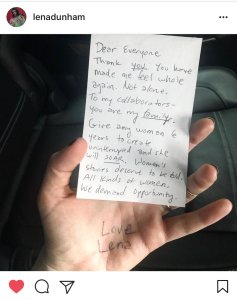 lenadunham
Dear Everyone
Thank you. You have
made me feel whole
again. Not alone.
To my collaborators-
you are my family.
Give any women 6
years to create
uninterrupted and she
will soar. Women's
stories deserve to be told.
All kinds of women.
We demand opportunity.
Love
Lena